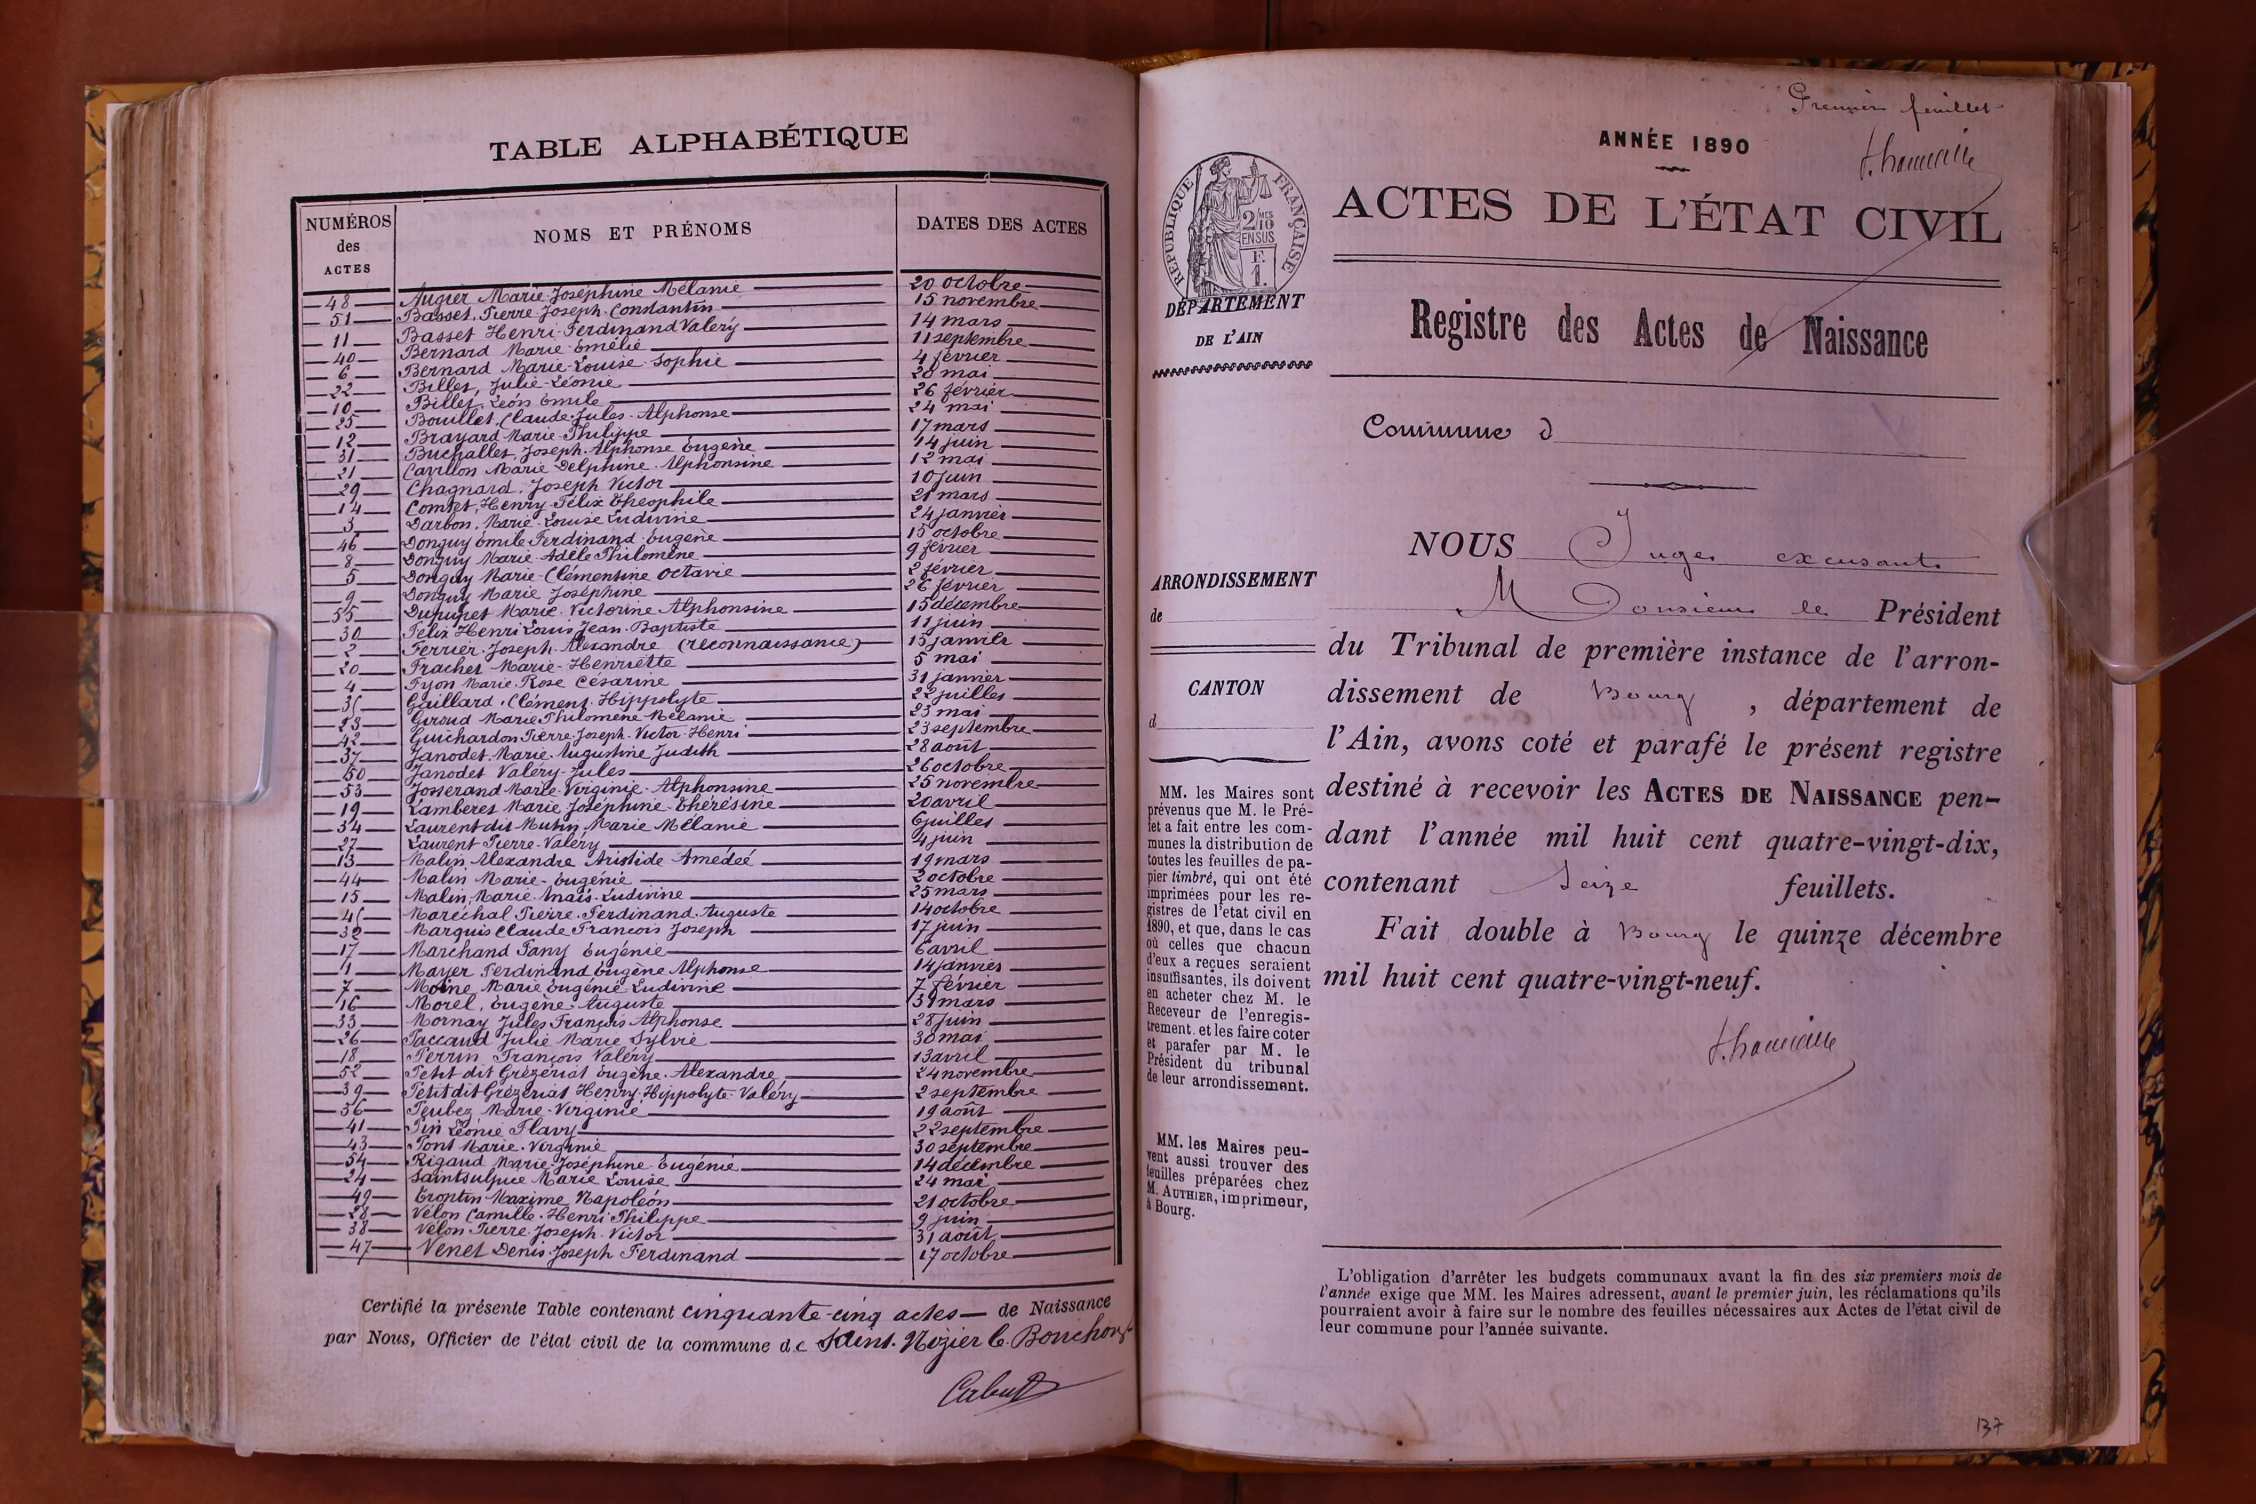 TABLE ALPHABÉTIQUE
NUMÉROS des ACTES
NOMS ET PRÉNOMS
DATES DES ACTES
48 Augier Marie-Joséphine Mélanie 20 octobre
51 Basset, Pierre-Joseph-Constantin 15 novembre
11 Basset Henri-Ferdinand Valéry 14 mars
40 Bernard Marie-Emélie 11 septembre
6 Bernard Marie-Louise-Sophie 4 février
22 Billet, Julie-Léonie 20 mai
10 Billet, Léon Emile 26 février
25 Bouillet, Claude-Jules-Alphonse 24 mai
12 Brayard Marie-Philippe 17 mars
31 Buchallet, Joseph-Alphonse Eugène 14 juin
21 Cavillon Marie Delphine-Alphonsine 12 mai
29 Chagnard, Joseph Victor 10 juin
14 Comtet, Henry-Félix Théophile 21 mars
3 Darbon, Marie-Louise Ludivine 24 janvier
46 Donguy Emile Ferdinand Eugène 15 octobre
8 Donguy Marie-Adèle Philomène 9 février
5 Donguy Marie-Clémentine Octavie 2 février
9 Donguy Marie Joséphine 26 février
55 Dupupet Marie-Victorine Alphonsine 15 décembre
30 Félix Henri Louis Jean-Baptiste 11 juin
2 Ferrier-Joseph-Alexandre (reconnaissance) 15 janvier
20 Frachet Marie-Henriette 5 mai
4 Fyon Marie-Rose Césarine 31 janvier
35 Gaillard, Clément-Hippolyte 22 juillet
23 Giroud Marie Philomène Mélanie 23 mai
42 Guichardon Pierre-Joseph-Victor-Henri 23 septembre
37 Janodet-Marie-Augustine Judith 28 août
50 Janodet Valéry-Jules 26 octobre
53 Josserand Marie Virginie-Alphonsine 25 novembre
19 Lamberet Marie-Joséphine-Thérésine 20 avril
34 Laurent dit Mutin, Marie Mélanie 6 juillet
27 Laurent Pierre-Valéry 4 juin
13 Malin Alexandre Aristide Amédeé 19 mars
44 Malin Marie-Eugénie 3 octobre
15 Malin, Marie-Anaïs-Ludivine 25 mars
45 Maréchal Pierre-Ferdinand-Auguste 14 octobre
32 Marquis Claude François Joseph 17 juin
17 Marchand Fany Eugénie 6 avril
1 Mayer Ferdinand Eugène Alphonse 14 janvier
7 Moine Marie Eugénie Ludivine 7 février
16 Morel, Eugène-Auguste 31 mars
33 Mornay Jules François Alphonse 28 juin
26 Paccaud Julie Marie Sylvie 30 mai
18 Perrin François Valéry 13 avril
52 Petit dit Grézériat Eugène-Alexandre 24 novembre
39 Petit dit Grézériat Henry-Hippolyte-Valéry 2 septembre
36 Peubez Marie-Virginie 19 août
41 Pin Léonie Flavy 22 septembre
43 Pont Marie-Virginie 30 septembre
54 Rigaud Marie-Joséphine-Eugénie 14 décembre
24 Saintsulpice Marie Louise 24 mai
49 Troptin Maxime Napoléon 21 octobre
28 Velon Camille-Henri Philippe 9 juin
38 Velon-Pierre-Joseph-Victor 31 août
47 Venet Denis-Joseph Ferdinand 17 octobre
Certifié la présente Table contenant cinquante-cinq actes de Naissance
par Nous, Officier de l'état civil de la commune de Saint-Nizier le Bouchoux
Premier feuillet
ANNÉE 1890
ACTES DE L'ÉTAT CIVIL
RÉPUBLIQUE FRANÇAISE
2/10 MES
EN SUS
F.
1.
DÉPARTEMENT
DE L'AIN
Registre des Actes de Naissance
Commune d
NOUS Juge excusant
ARRONDISSEMENT
de
Monsieur le Président
du Tribunal de première instance de l'arron-
CANTON
d
dissement de Bourg, département de
l'Ain, avons coté et parafé le présent registre
destiné à recevoir les ACTES DE NAISSANCE pen-
dant l'année mil huit cent quatre-vingt-dix,
contenant Seize feuillets.
Fait double à Bourg le quinze décembre
mil huit cent quatre-vingt-neuf.
MM. les Maires sont
prévenus que M. le Pré-
fet a fait entre les com-
munes la distribution de
toutes les feuilles de pa-
pier timbré, qui ont été
imprimées pour les re-
gistres de l'etat civil en
1890, et que, dans le cas
où celles que chacun
d'eux a reçues seraient
insuffisantes, ils doivent
en acheter chez M. le
Receveur de l'enregis-
trement. et les faire coter
et parafer par M. le
Président du tribunal
de leur arrondissement.
MM. les Maires peu-
vent aussi trouver des
feuilles préparées chez
M. AUTHIER, imprimeur,
à Bourg.
L'obligation d'arrêter les budgets communaux avant la fin des six premiers mois de
l'année exige que MM. les Maires adressent, avant le premier juin, les réclamations qu'ils
pourraient avoir à faire sur le nombre des feuilles nécessaires aux Actes de l'état civil de
leur commune pour l'année suivante.
137